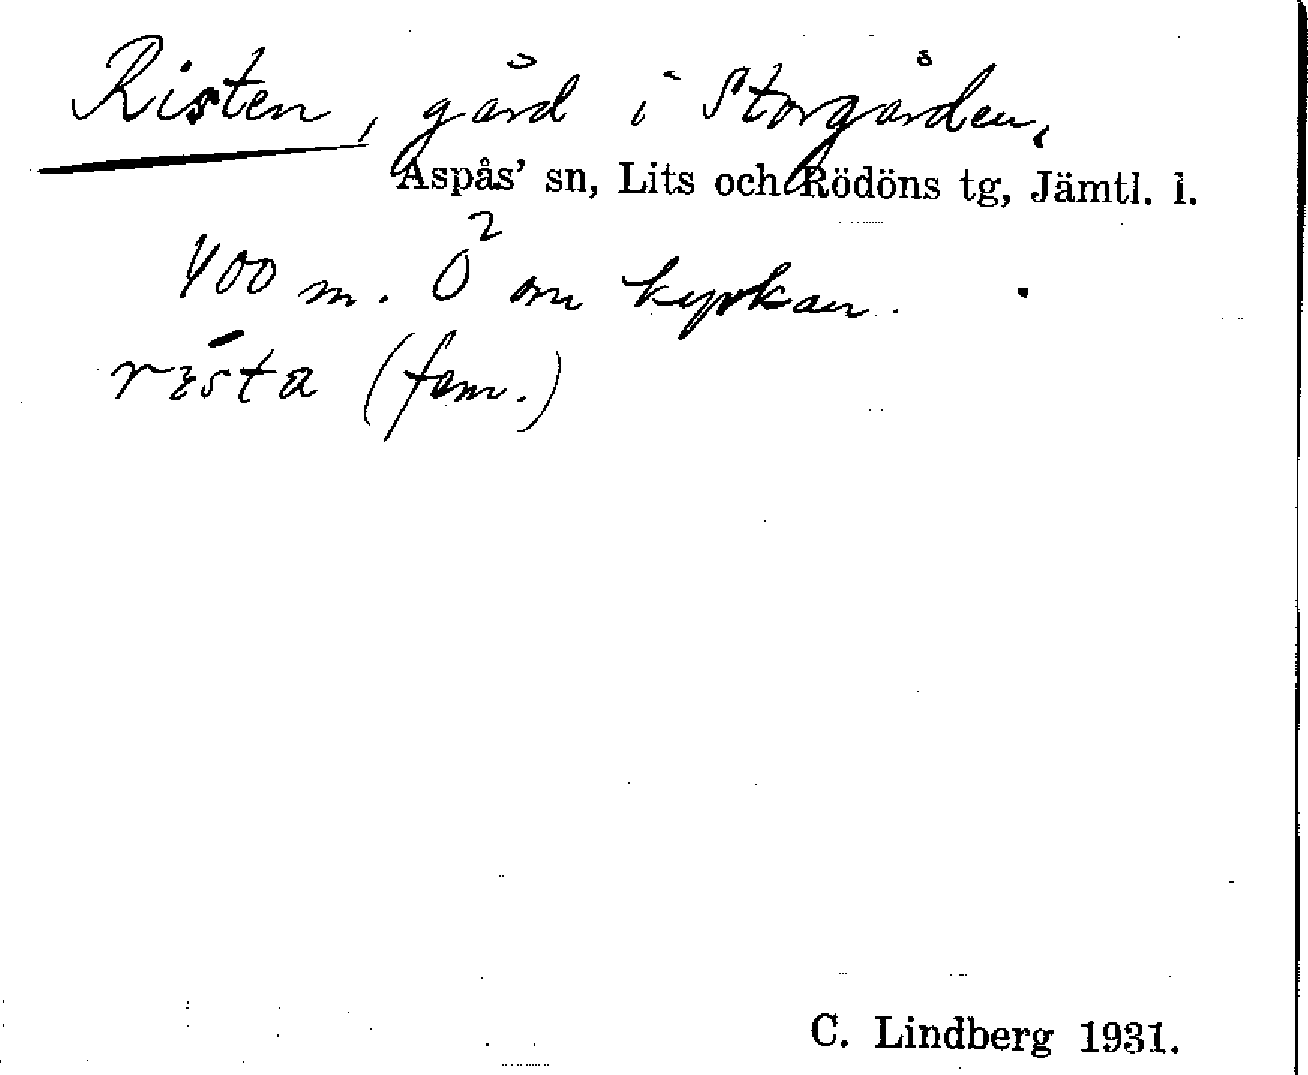 Risten, gård i Storgården,
Aspås' sn, Lits och Rödöns tg, Jämtl. l.
400 m. Ö om kyrkan.
rista (fem.)
C. Lindberg 1931.